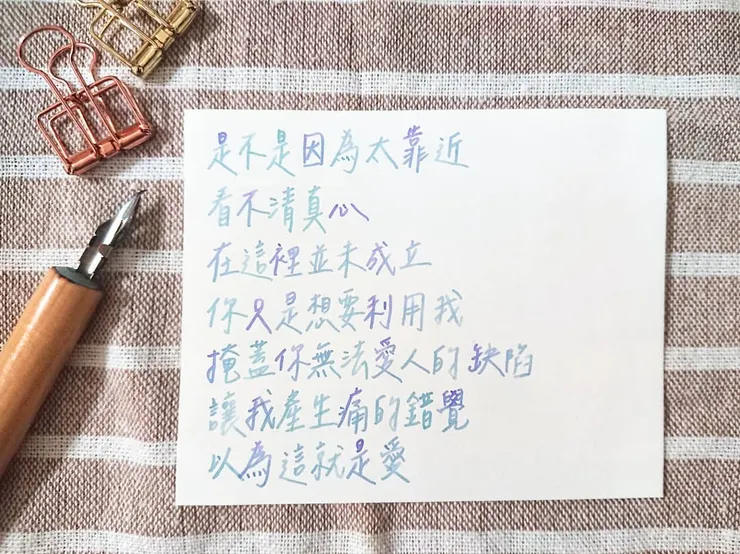 是不是因為太靠近
看不清真心
在這裡並未成立
你只是想要利用我
掩蓋你無法愛人的缺陷
讓我產生痛的錯覺
以為這就是愛